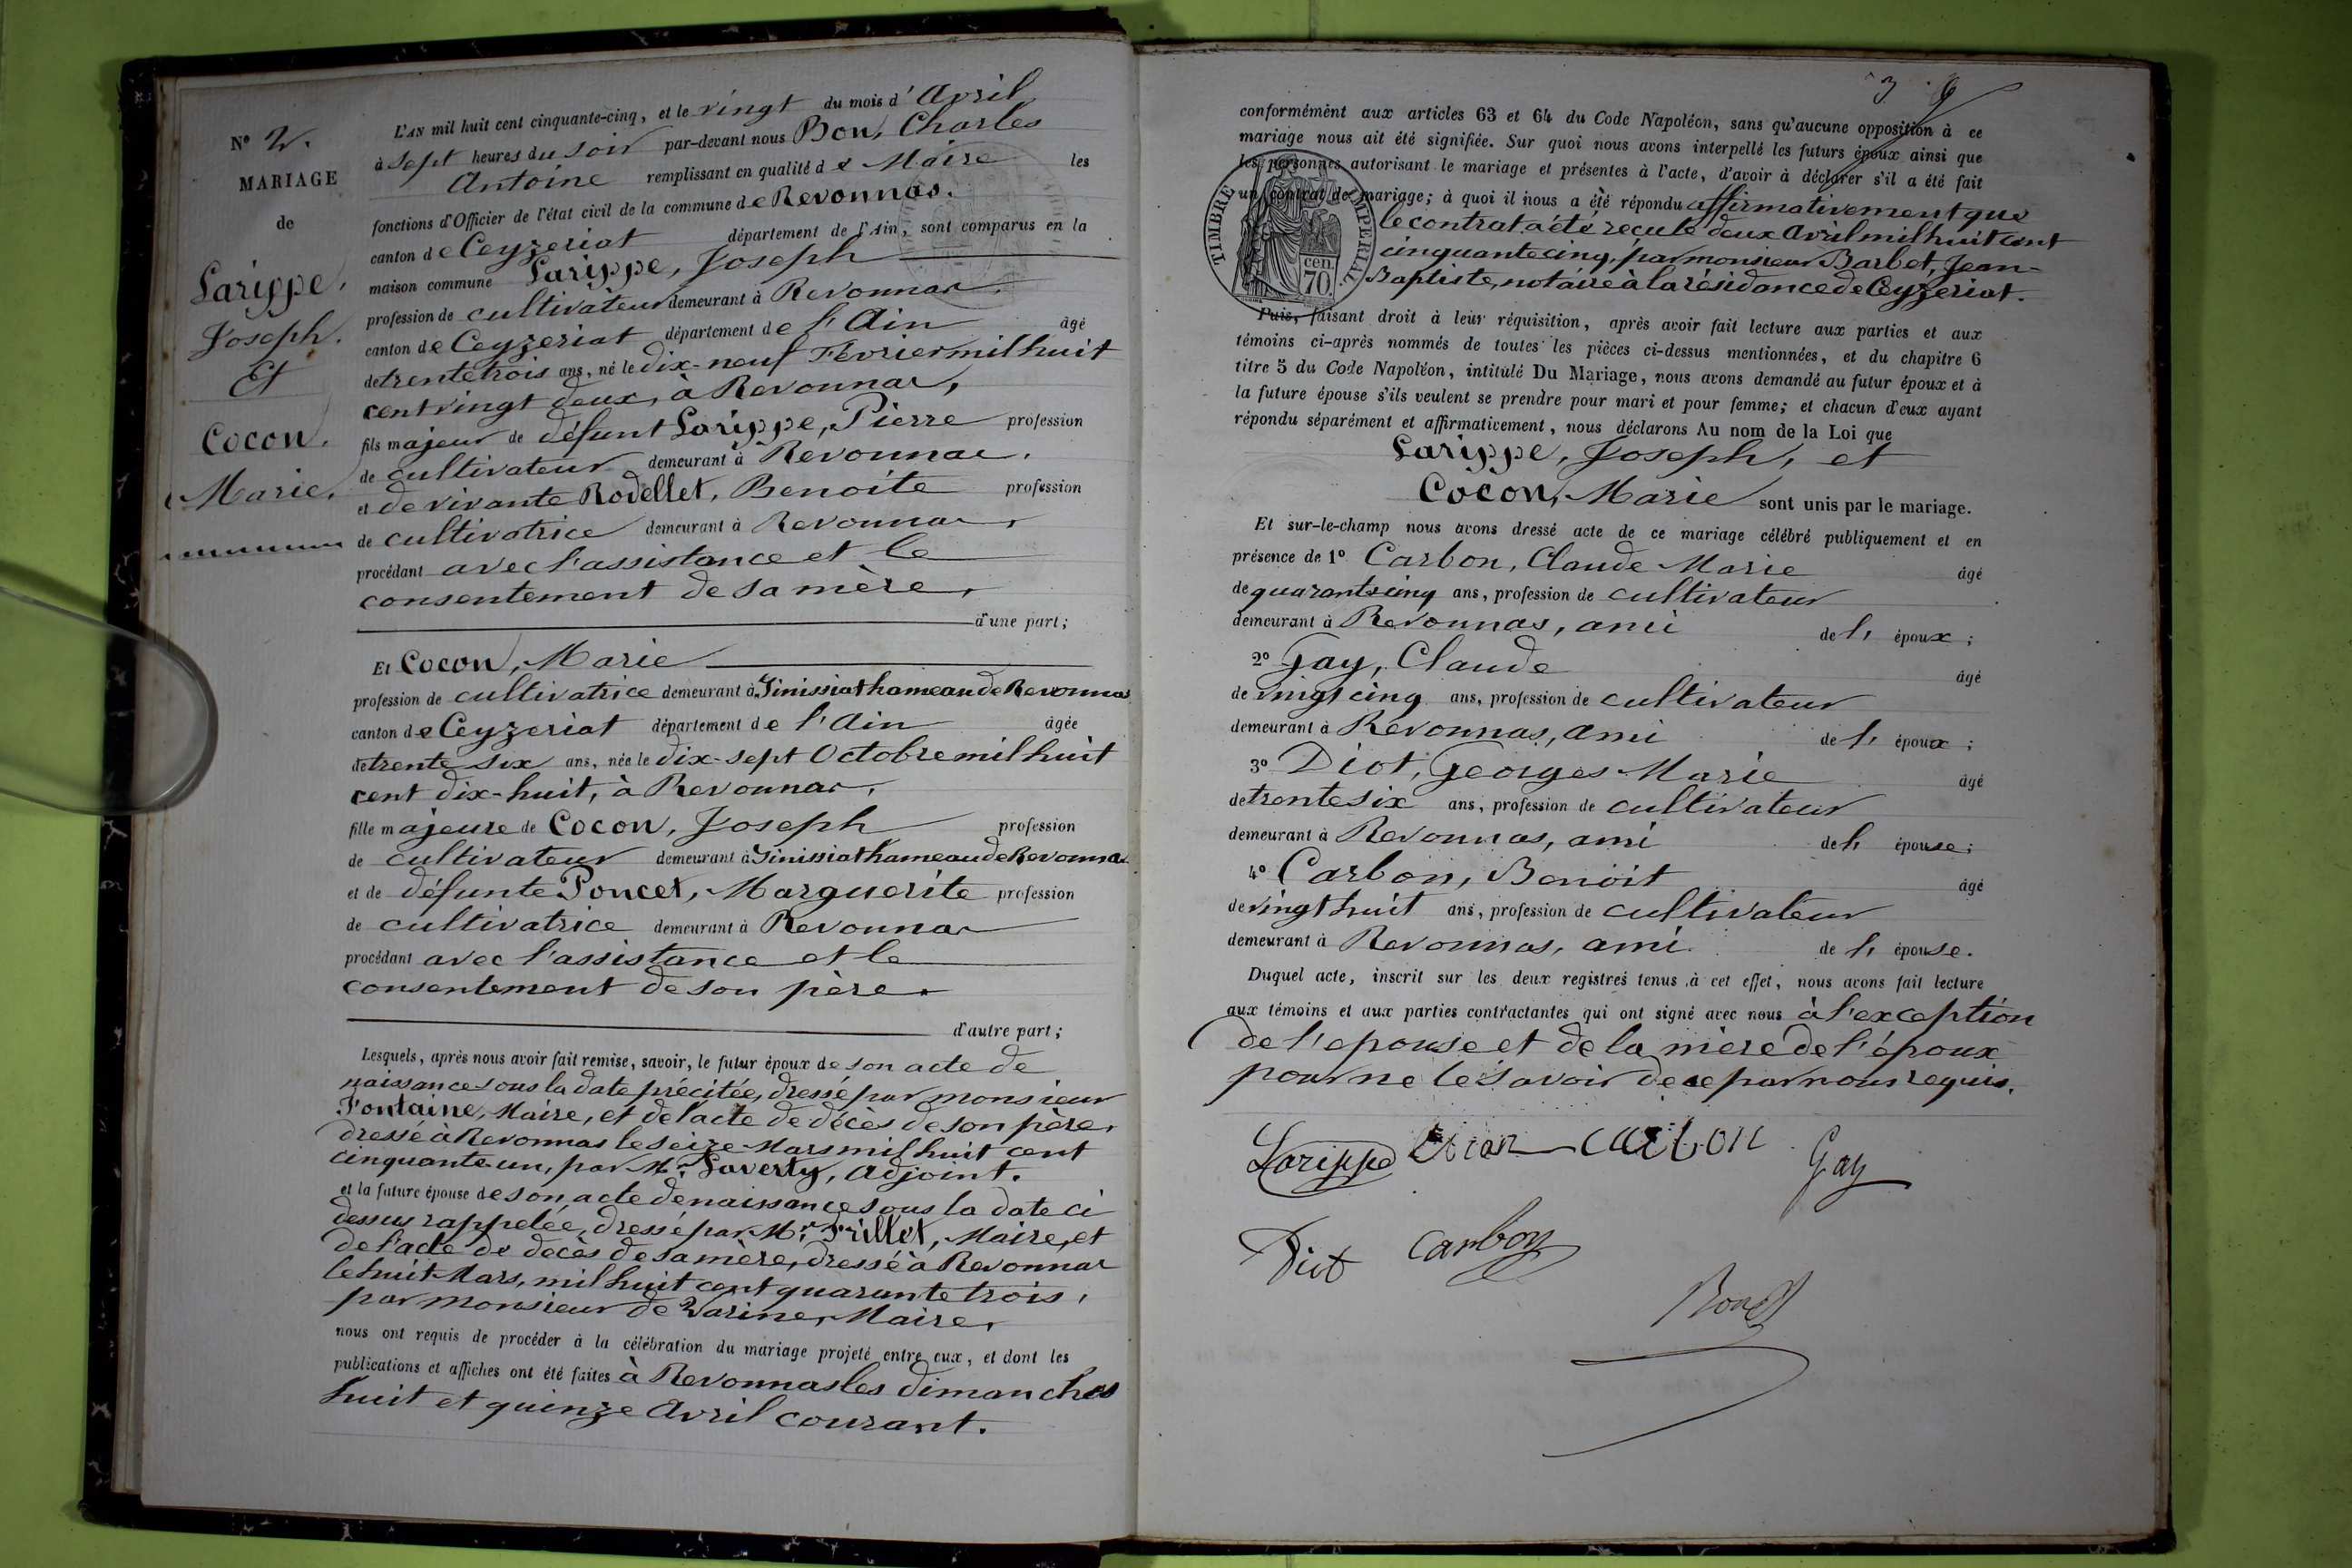 N° 2.
MARIAGE
de
Larippe,
Joseph.
Et
Cocon,
Marie.
L'AN mil huit cent cinquante-cinq, et le vingt du mois d'Avril
à sept heures du soir par-devant nous Bon, Charles
Antoine remplissant en qualité de Maire les
fonctions d'Officier de l'état civil de la commune de Revonnas.
canton de Ceyzeriat département de l'Ain, sont comparus en la
maison commune Larippe, Joseph
profession de cultivateur demeurant à Revonnas,
canton de Ceyzeriat département de l'Ain âgé
de trente trois ans, né le dix-neuf Février mil huit
cent vingt deux, à Revonnas,
fils majeur de défunt Larippe, Pierre profession
de cultivateur demeurant à Revonnas,
et de vivante Rodellet, Benoite profession
de cultivatrice demeurant à Revonnas,
procédant avec l'assistance et le
consentement de sa mère,
d'une part;
Et Cocon, Marie
profession de cultivatrice demeurant à Sinissiat hameau de Revonnas
canton de Ceyzeriat département de l'Ain âgée
de trente six ans, née le dix-sept Octobre mil huit
cent dix-huit, à Revonnas,
fille majeure de Cocon, Joseph profession
de cultivateur demeurant à Sinissiat hameau de Revonnas
et de défunte Poncet, Marguerite profession
de cultivatrice demeurant à Revonnas
procédant avec l'assistance et le
consentement de son père.
d'autre part;
Lesquels, après nous avoir fait remise, savoir, le futur époux de son acte de
naissance sous la date précitée, dressé par monsieur
Fontaine, Maire, et de l'acte de décès de son père,
dressé à Revonnas le seize Mars mil huit cent
cinquante-un, par Mr. Laverty, adjoint.
et la future épouse de son acte de naissance sous la date ci
dessus rappelée, dressé par Mr. Frillet, Maire, et
de l'acte de décès de sa mère, dressé à Revonnas
le huit Mars, mil huit cent quarante trois,
par monsieur de Varine, Maire,
nous ont requis de procéder à la célébration du mariage projeté entre eux, et dont les
publications et affiches ont été faites à Revonnas les dimanches
huit et quinze Avril courant.
3
conformément aux articles 63 et 64 du Code Napoléon, sans qu'aucune opposition à ce
mariage nous ait été signifiée. Sur quoi nous avons interpellé les futurs époux ainsi que
les personnes autorisant le mariage et présentes à l'acte, d'avoir à déclarer s'il a été fait
un contrat de mariage; à quoi il nous a été répondu affirmativement que
le contrat a été reçu le deux Avril mil huit cent
cinquante cinq, par monsieur Barbet, Jean-
Baptiste, notaire à la résidance de Ceyzeriat.
TIMBRE IMPERIAL
cen.
70
Puis, faisant droit à leur réquisition, après avoir fait lecture aux parties et aux
témoins ci-après nommés de toutes les pièces ci-dessus mentionnées, et du chapitre 6
titre 5 du Code Napoléon, intitulé Du Mariage, nous avons demandé au futur époux et à
la future épouse s'ils veulent se prendre pour mari et pour femme; et chacun d'eux ayant
répondu séparément et affirmativement, nous déclarons Au nom de la Loi que
Larippe, Joseph, et
Cocon, Marie sont unis par le mariage.
Et sur-le-champ nous avons dressé acte de ce mariage célébré publiquement et en
présence de 1° Carbon, Claude Marie âgé
de quarante cinq ans, profession de cultivateur
demeurant à Revonnas, ami de l' époux;
2° Gay, Claude âgé
de vingt cinq ans, profession de cultivateur
demeurant à Revonnas, ami de l' époux;
3° Diot, Georges Marie âgé
de trente six ans, profession de cultivateur
demeurant à Revonnas, ami de l' épouse;
4° Carbon, Benoit âgé
de vingt huit ans, profession de cultivateur
demeurant à Revonnas, ami de l' épouse.
Duquel acte, inscrit sur les deux registres tenus à cet effet, nous avons fait lecture
aux témoins et aux parties contractantes qui ont signé avec nous à l'exception
de l'epouse et de la mère de l'époux
pour ne le savoir de ce par nous requis.
Larippe carbon Gay
Diot carbon